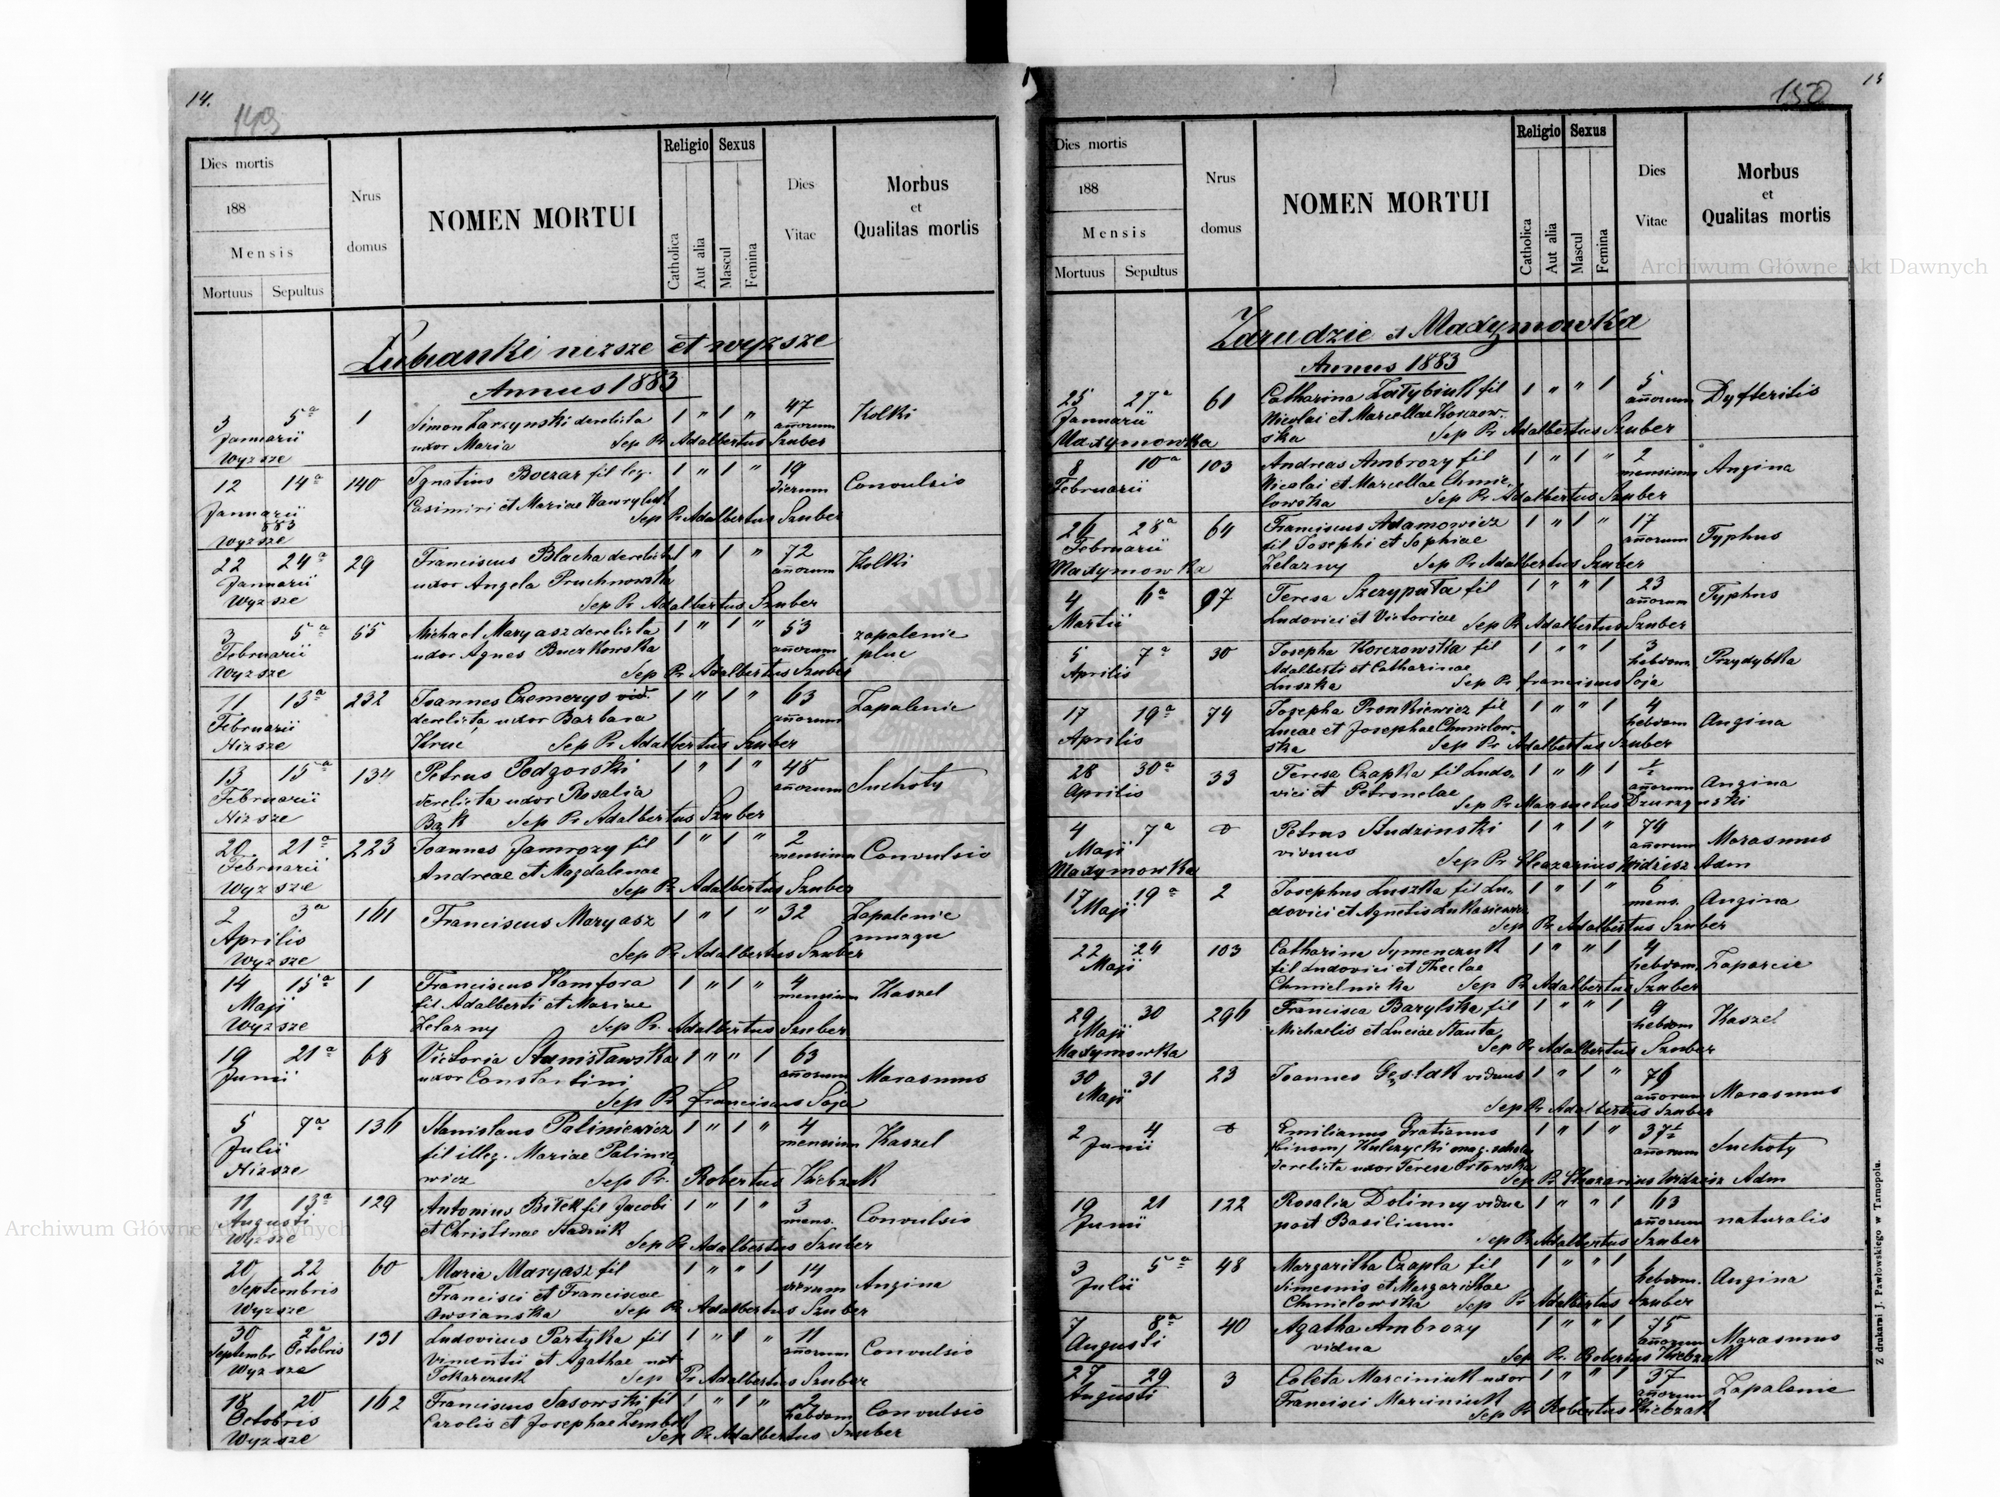 14.
149
Dies mortis
188
Mensis
Mortuus
Sepultus
Nrus
domus
NOMEN MORTUI
Religio
Catholica
Aut alia
Sexus
Mascul
Femina
Dies
Vitae
Morbus
et
Qualitas mortis
Łubianki nizsze et wyzsze
Annus 1883
3 5a 1 Simon Larzynski derelicta 1 " 1 " 47 Kolki
Januarii uxor Maria Sep Pr Adalbertus Szuber añorum
Wyzsze
12 14a 140 Ignatius Boczar fil leg. 1 " 1 " 19 Convulsio
Januarii Casimiri et Mariae Hawryluk dierum
883 Sep Pr Adalbertus Szuber
Wyzsze
22 24a 29 Franciscus Blacha derelicta 1 " 1 " 72 Kolki
Januarii uxor Angela Pruchnowska añorum
Wyzsze Sep Pr Adalbertus Szuber
3 5a 65 Michael Maryasz derelicta 1 " 1 " 53 zapalenie
Februarii uxor Agnes Buczkowska añorum pluc
Wyzsze Sep Pr Adalbertus Szuber
11 13a 232 Joannes Czemerys vid. 1 " 1 " 63 Zapalenie
Februarii derelicta uxor Barbara añorum
Nizsze Hruc Sep Pr Adalbertus Szuber
13 15a 134 Petrus Podgorski 1 " 1 " 48 Suchoty
Februarii derelicta uxor Rosalia añorum
Nizsze Bąk Sep Pr Adalbertus Szuber
20 21a 223 Joannes Jamrozy fil 1 " 1 " 2 Convulsio
Februarii Andreae et Magdalenae mensium
Wyzsze Sep Pr Adalbertus Szuber
2 3a 161 Franciscus Maryasz 1 " 1 " 32 Zapalenie
Aprilis muzgu
Wyzsze Sep Pr Adalbertus Szuber
14 15a 1 Franciscus Kamfora 1 " 1 " 4 Kaszel
Maji fil Adalberti et Mariae mensium
Wyzsze Zelazny Sep Pr. Adalbertus Szuber
19 21a 68 Victoria Stanisławska 1 " " 1 63 Marasmus
Junii uxor Constantini añorum
Sep Pr Franciscus Soja
5 7a 136 Stanislaus Paliniewicz 1 " 1 " 4 Kaszel
Julii fil illeg. Mariae Palinie mensium
Nizsze wicz Sep Pr. Robertus Kiebzak
11 13a 129 Antonius Bitek fil Jacobi 1 " 1 " 3 Convulsio
Augusti et Christinae Stadnik mens.
Wyzsze Sep Pr Adalbertus Szuber
20 22 60 Maria Maryasz fil 1 " " 1 14 Angina
Septembris Francisci et Franciscae
Wyzsze Owsianska Sep Pr Adalbertus Szuber
30 2a 131 Ludovicus Partyka fil 1 " 1 " 11 Convulsio
Septembr Octobris Vincentii et Agathae nat añorum
Wyzsze Tokarczuk Sep Pr Adalbertus Szuber
18 20 162 Franciscus Sasowski fil 1 " 1 " 2 Convulsio
Octobris Carolis et Josephae Zembik hebdom
Wyzsze Sep Pr Adalbertus Szuber
15
150
Dies mortis
188
Mensis
Mortuus
Sepultus
Nrus
domus
NOMEN MORTUI
Religio
Catholica
Aut alia
Sexus
Mascul
Femina
Dies
Vitae
Morbus
et
Qualitas mortis
Zarudzie et Maxymowka
Annus 1883
25 27a 61 Catharina fil 1 " " 1 5 Dyfteritis
Januarii Nicolai et Marcellae Korczow- añorum
Maxymowka ska Sep Pr Adalbertus Szuber
8 10a 103 Andreas Ambrozy fil 1 " 1 " 2 Angina
Februarii Nicolai et Marcellae Chmie- mensium
lowska Sep Pr Adalbertus Szuber
26 28a 64 Franciscus Adamowicz 1 " 1 " 17 Typhus
Februarii fil Josephi et Sophiae añorum
Maxymowka Zelazny Sep Pr Adalbertus Szuber
4 6a 97 Teresa Szczyputa fil 1 " " 1 23 Typhus
Martii Ludovici et Victoriae añorum
Sep Pr Adalbertus Szuber
5 7a 30 Josepha Korczowska fil 1 " " 1 3 Przydybka
Aprilis Adalberti et Catharinae hebdom
Luszka Sep Pr Franciscus Soja
17 19a 74 Josepha Pronkiewicz fil 1 " " 1 4 Angina
Aprilis Lucae et Josephae Chmielow- hebdom
ska Sep Pr Adalbertus Szuber
28 30a 33 Teresa Czapka fil Ludo- 1 " " 1 1/2 Angina
Aprilis vici et Petronelae añorum
Sep Pr Mansuetus
4 7a Petrus Studzinski 1 " 1 " 74 Marasmus
Maji viduus añorum
Maxymowka Sep Pr Eleazarius Widzisz Adm
17 19a 2 Josephus Luszka fil Lu- 1 " 1 " 6 Angina
Maji dovici et Agnetis Lukasiewicz mens.
Sep Pr Adalbertus Szuber
22 24 103 Catharina Symenczuk 1 " " 1 4 Zaparcie
Maji fil Ludovici et Theclae hebdom.
Chmielnicka Sep Pr Adalbertus Szuber
29 30 296 Francisca Barylska fil 1 " " 1 9 Kaszel
Maji Michaelis et Luciae Nauta hebdom
Maxymowka Sep Pr Adalbertus Szuber
30 31 23 Joannes Gęslak viduus 1 " 1 " 76 Marasmus
Maji añorum
Sep Pr Adalbertus Szuber
2 4 Emilianus Gratianus 1 " 1 " 37 1/2 Suchoty
Junii (binom) Kulczycki mag. schola añorum
derelicta uxor Teresa Ortowska
Sep Pr Eleazarius Widzisz Adm
19 21 122 Rosalia Dolinny vidua 1 " " 1 63 naturalis
Junii post Basilium añorum
Sep Pr Adalbertus Szuber
3 5a 48 Margaritha Czapla fil 1 " " 1 Angina
Julii Simeonis et Margarithae hebdom.
Chmielowska Sep Pr Adalbertus Szuber
7 8a 40 Agatha Ambrozy 1 " " 1 75 Marasmus
Augusti vidua añorum
Sep Pr. Robertus Kiebzak
27 29 3 Coleta Marciniuk uxor 1 " " 1 37 Zapalenie
Augusti Francisci Marciniuk añorum
Sep Pr Robertus Kiebzak
Z drukarni J. Pawłowskiego w Tarnopolu.
Archiwum Główne Akt Dawnych
Archiwum Główne Akt Dawnych